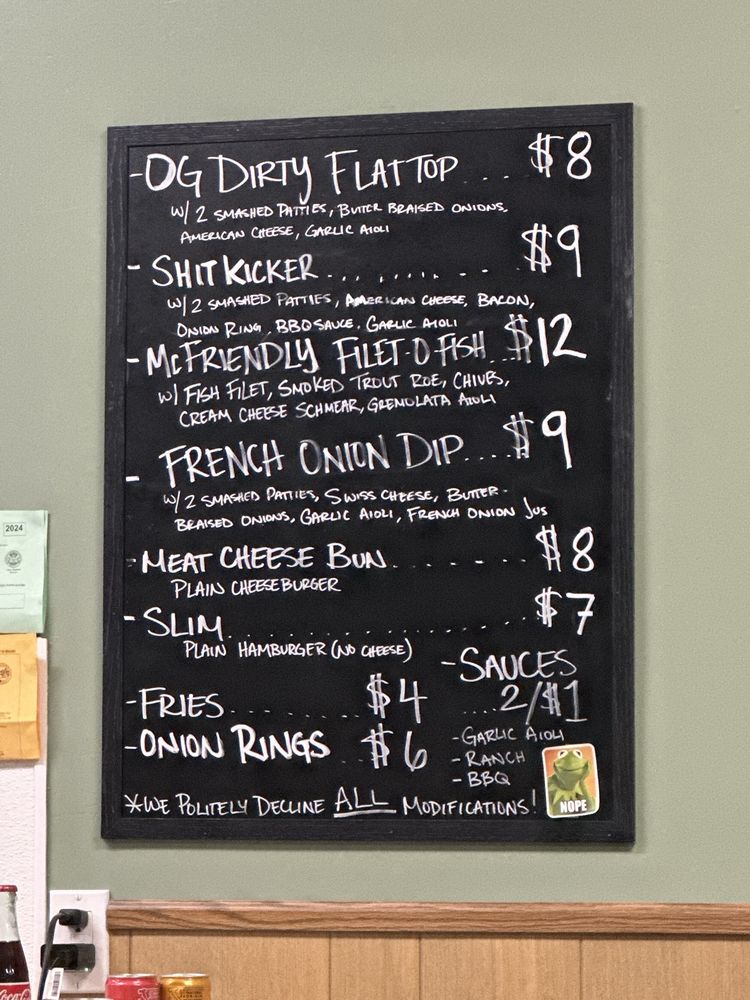 -OG DIRTY FLAT TOP .... $8
W/ 2 SMASHED PATTIES, BUTTER BRAISED ONIONS,
AMERICAN CHEESE, GARLIC AIOLI
- SHITKICKER......... $9
W/ 2 SMASHED PATTIES, AMERICAN CHEESE, BACON,
ONION RING, BBQ SAUCE, GARLIC AIOLI
- MCFRIENDLY FILET-O FISH... $12
W/ FISH FILET, SMOKED TROUT ROE, CHIVES,
CREAM CHEESE SCHMEAR, GREMOLATA AIOLI
- FRENCH ONION DIP.... $9
W/ 2 SMASHED PATTIES, SWISS CHEESE, BUTTER-
BRAISED ONIONS, GARLIC AIOLI, FRENCH ONION JUS
- MEAT CHEESE BUN....... $8
PLAIN CHEESEBURGER
- SLIM............... $7
PLAIN HAMBURGER (NO CHEESE)
-FRIES....... $4
-ONION RINGS ... $6
-SAUCES
....2/$1
-GARLIC AIOLI
-RANCH
-BBQ
NOPE
*WE POLITELY DECLINE ALL MODIFICATIONS!
2024
Coca-Cola